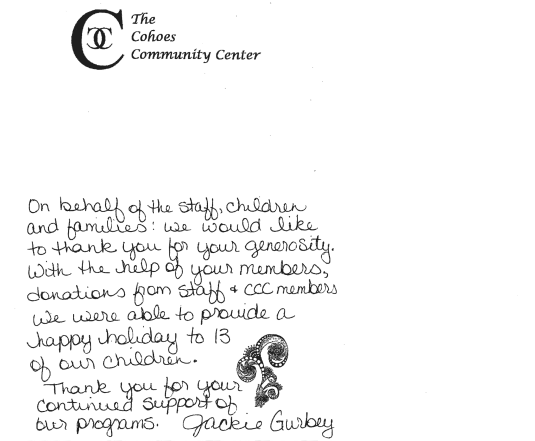 The
Cohoes
Community Center
On behalf of the staff, children
and families: we would like
to thank you for your generosity.
With the help of your members,
donations from staff & CCC members
we were able to provide a
happy holiday to 13
of our children.
Thank you for your
continued support of
our programs. Jackie Gurbey